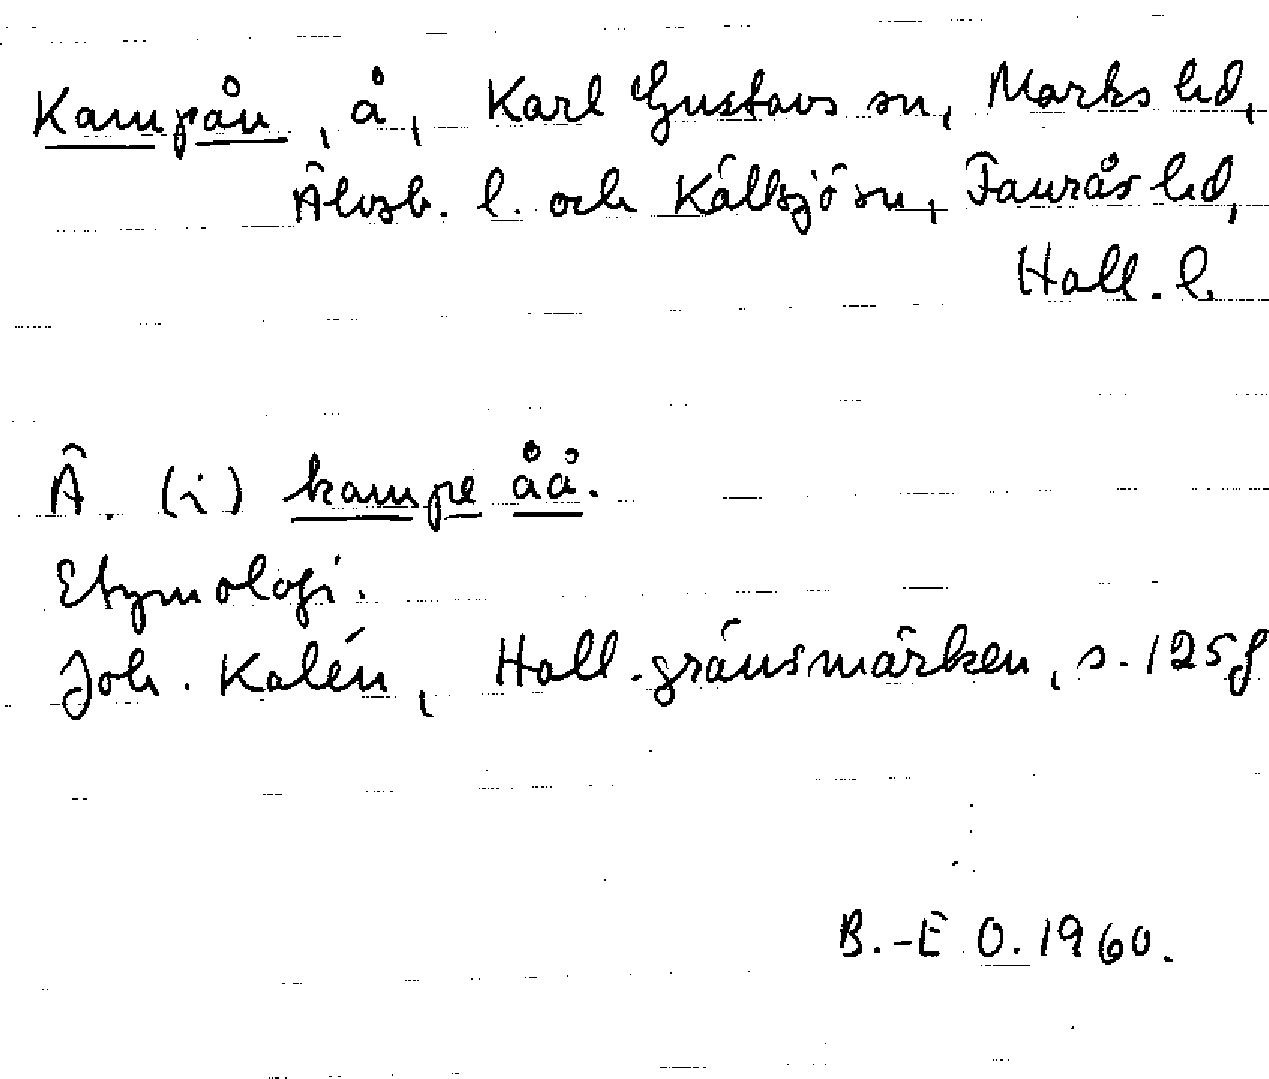 Kampån, å, Karl Gustavs sn, Marks hd,
Älvsb. l. och Källsjö sn, Faurås hd,
Hall. l.
Ä. (i) kampe åå.
Etymologi.
Joh. Kalén, Hall. gränsmärken, s. 125 f
B.-E O. 1960.